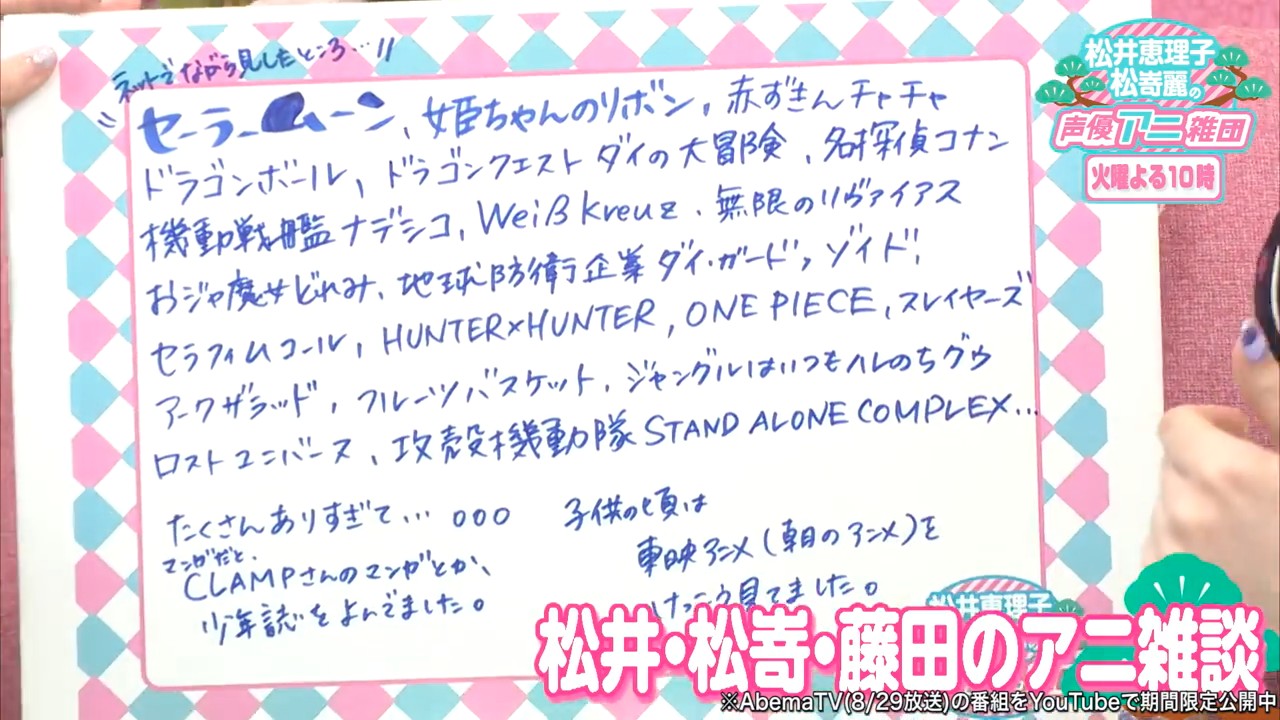 ネットでながら見したところ…!!
セーラームーン、姫ちゃんのリボン、赤ずきんチャチャ
ドラゴンボール、ドラゴンクエスト ダイの大冒険、名探偵コナン
機動戦艦ナデシコ、Weiß kreuz、無限のリヴァイアス
おジャ魔女どれみ、地球防衛企業ダイ・ガード、ゾイド、
セラフィムコール、HUNTER×HUNTER、ONE PIECE、スレイヤーズ
アークザラッド、フルーツバスケット、ジャングルはいつもハレのちグゥ
ロストユニバース、攻殻機動隊 STAND ALONE COMPLEX…
たくさんありすぎて…ooo
マンガだと、
CLAMPさんのマンガとか、
少年誌をよんでました。
子供の頃は
東映アニメ(朝のアニメ)を
けっこう見てました。
松井恵理子
松嵜麗の
声優アニ雑団
火曜よる10時
松井恵理子
松井・松嵜・藤田のアニ雑談
※AbemaTV(8/29放送)の番組をYouTubeで期間限定公開中